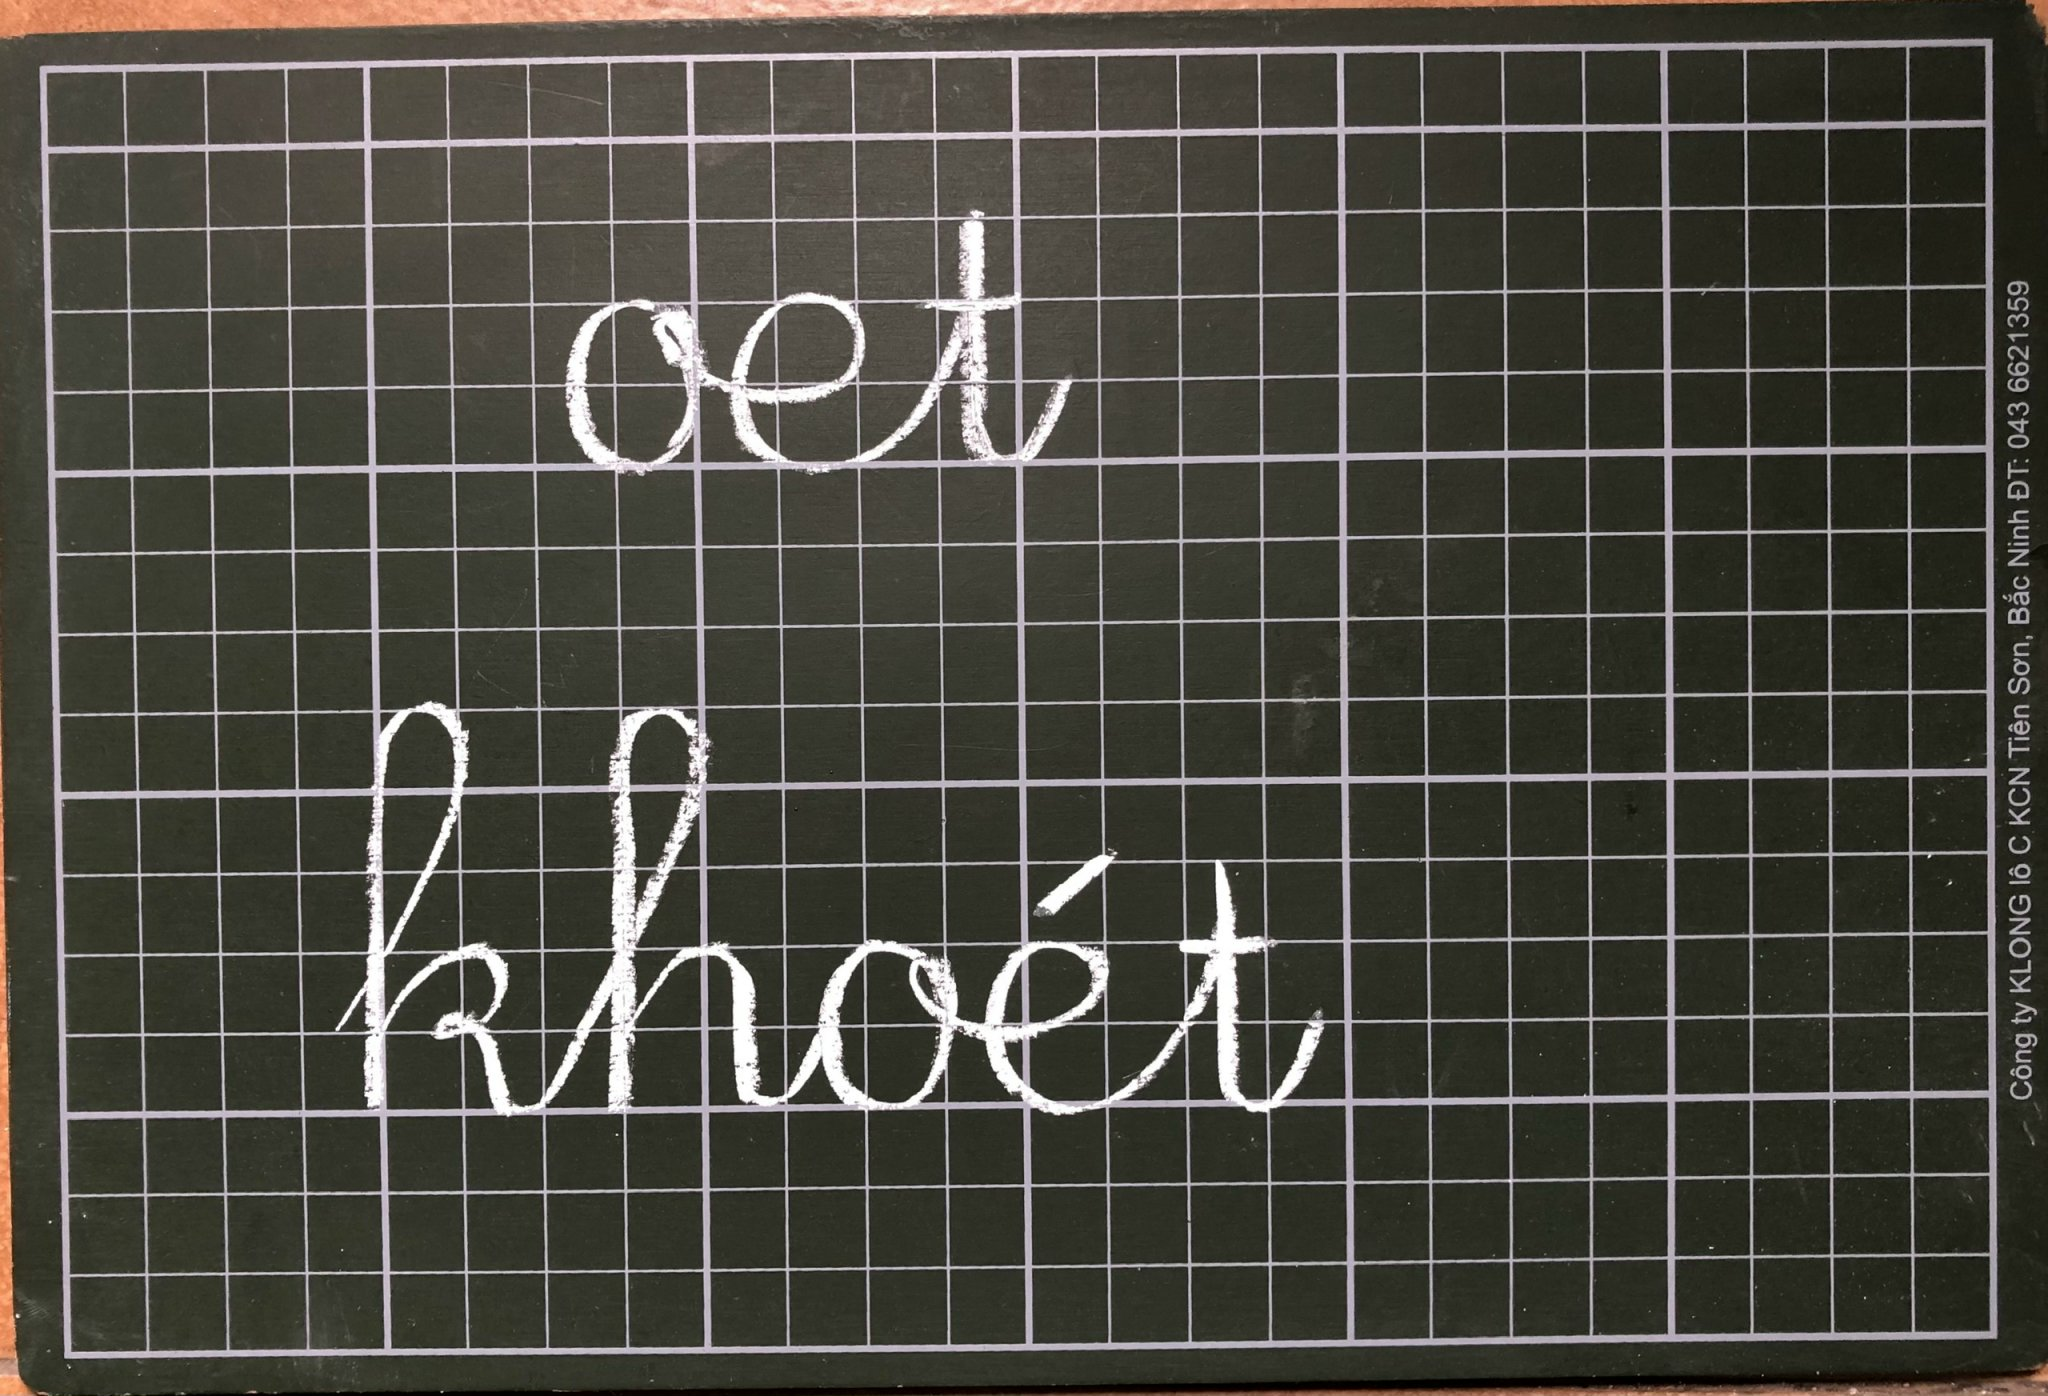 oet
khoét
Công ty KLONG lô C KCN Tiên Sơn, Bắc Ninh ĐT: 043 6621359